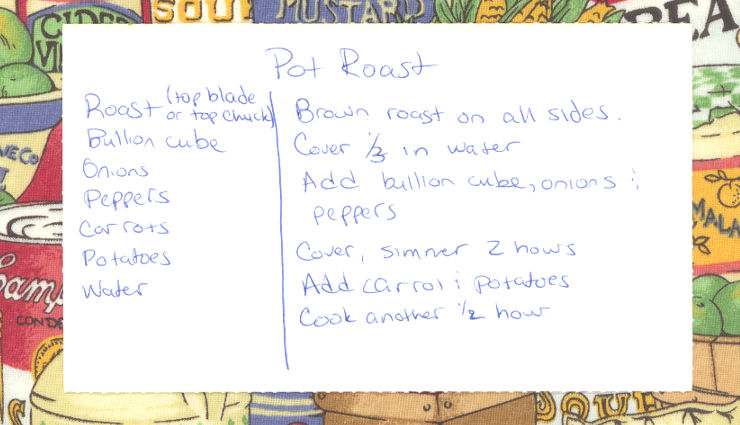 CIDER
SOUP
MUSTARD
Pot Roast
Roast (top blade
or top chuck)
Bullion cube
Onions
Peppers
Carrots
Potatoes
Water
Brown roast on all sides.
Cover 1/3 in water
Add bullion cube, onions &
peppers
Cover, simmer 2 hours
Add carrot & potatoes
Cook another 1/2 hour